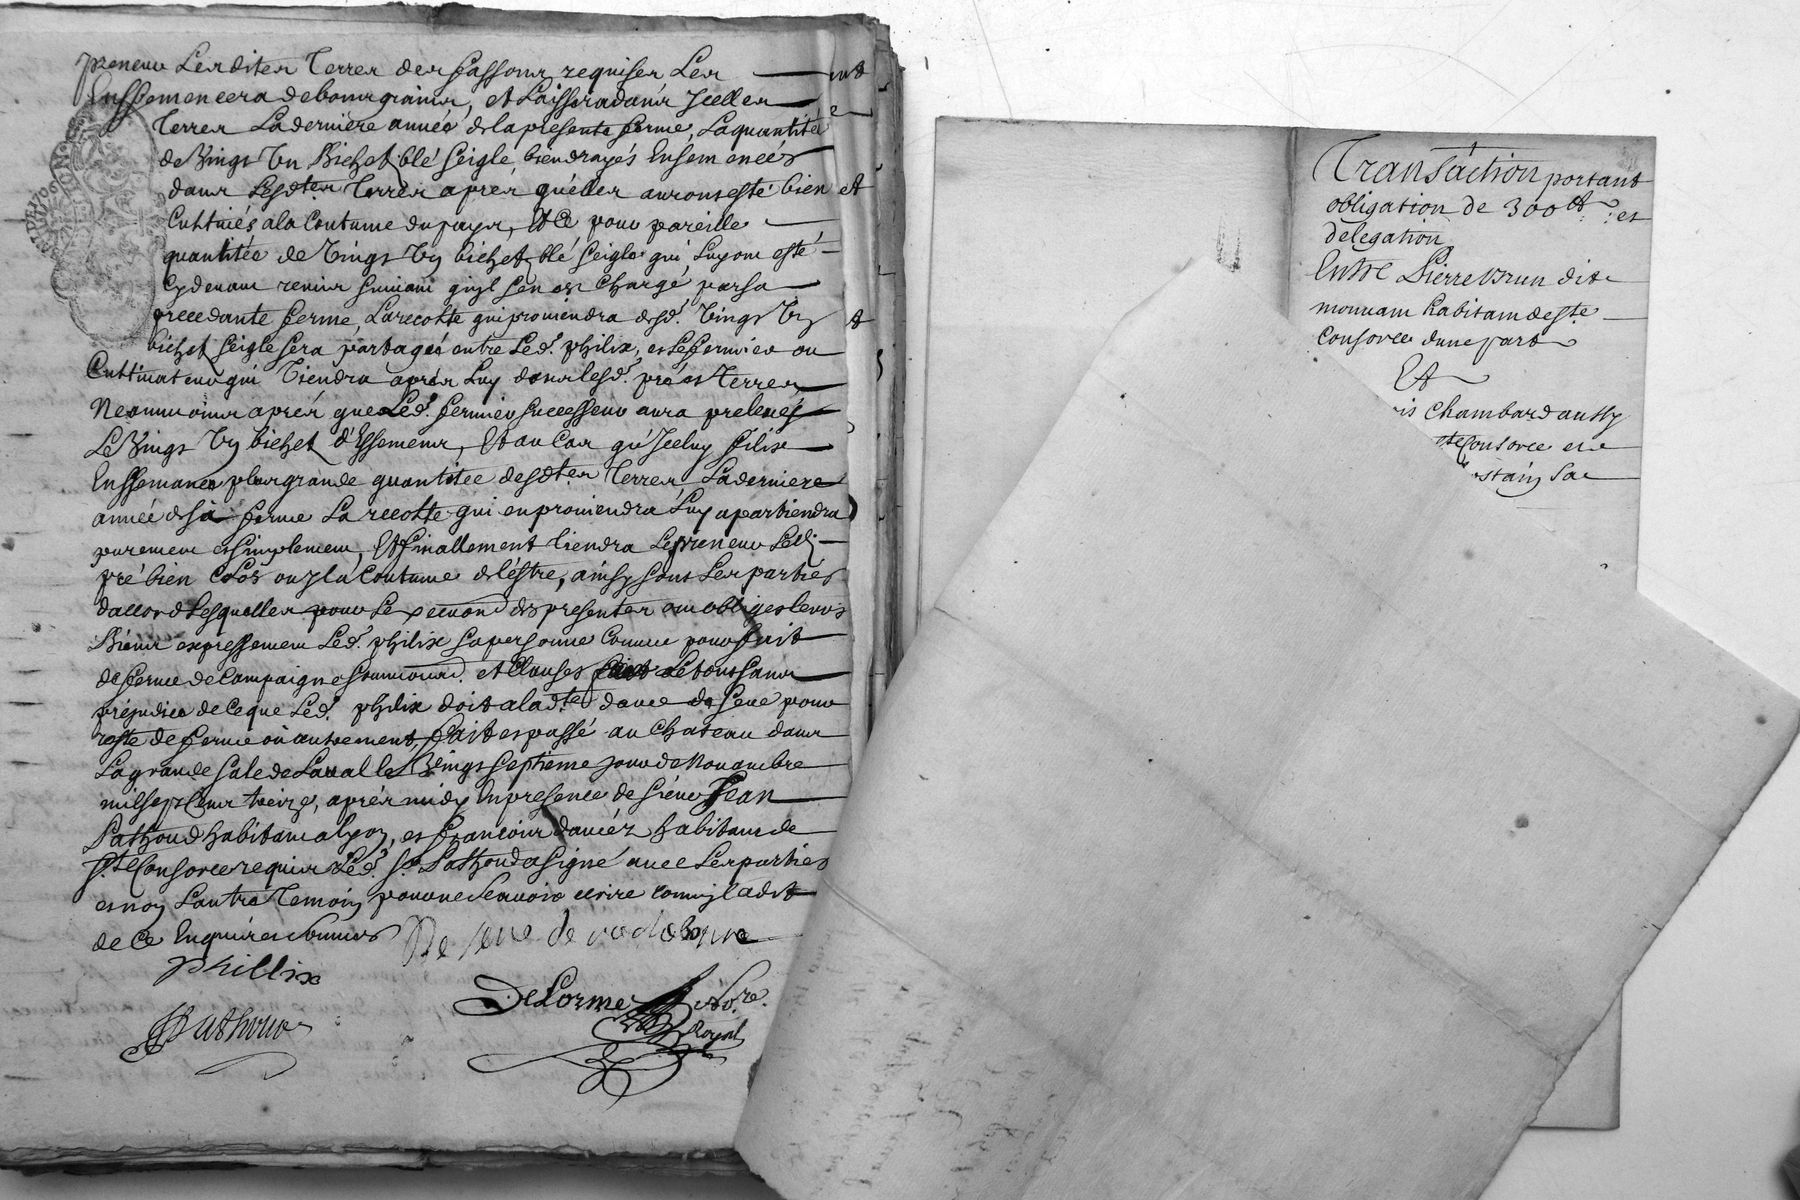 preneur Lesdites Terres des fassons requises Les
Enssemencera de bons grains, et Laissera dans Jcelles
Terres La derniere année de la presente ferme, La quantité
de Vingt Un Bichet blé seigle biendrayés Ensemencés
dans Lesdtes Terres apres quelles auront esté bien et
Cultiués a la Coutume du pays, Et Ce pour pareille
quantitée de Vingt Un bichet blé seigle qui Luy ont esté
Cydeuant remis suiuant quil sen est Chargé par sa
precedante ferme, La recolte qui prouiendra desd. Vingt Un
bichet seigle sera partagée entre Led. philix, et Le fermier ou
Cultiuateur qui Viendra après Luy dans lesd. prés et Terres
Neanmoins après que Led. fermier successeur aura preleués
Le Vingt Un bichet d'Essemens, Et au Cas qu'Jceluy filix
Enssemance plus grande quantitée desdtes Terres La derniere
année de sa ferme La recolte qui en prouiendra Luy apartiendra
purement et simplement, Et finallement Tiendra Le preneur Led.
pré bien Clos ou Jl a Coutume de l'éstre, ainsy sont Les parties
daccord Lesquelles pour Le
des presentes ont obligés leurs
Biens expressement Led. philix sa personne Comme pour fait
de ferme de Campaigne et Clauses fait Le tout sans
préjudice de Ceque Led. philix doit a ladte dame de Seue pour
reste de ferme où autrement, fait et passé au Chateau dans
La grande sale de Laual le Vingt septieme jour de Nouambre
mil sept Cent treize, après midy En presence de sieur Jean
Pathoud habitant a Lyon, et françois habitant de
Ste Consorce requis Led. sr. Pathoud a signé auec Les parties
et non L'autre Temoin pour ne Scauoir ecrire comme jl a dit
de Ce Enquis et sommés
De seue de
Phillix
Delorme No.re
Royal
Pathoud
Transaction portant
obligation de 300 et
delegation
Entre Pierre Brun dit
mounam habitant de Ste
Consorce dune part
Et
is Chambard aussy
Ste Consorce et
stain sa